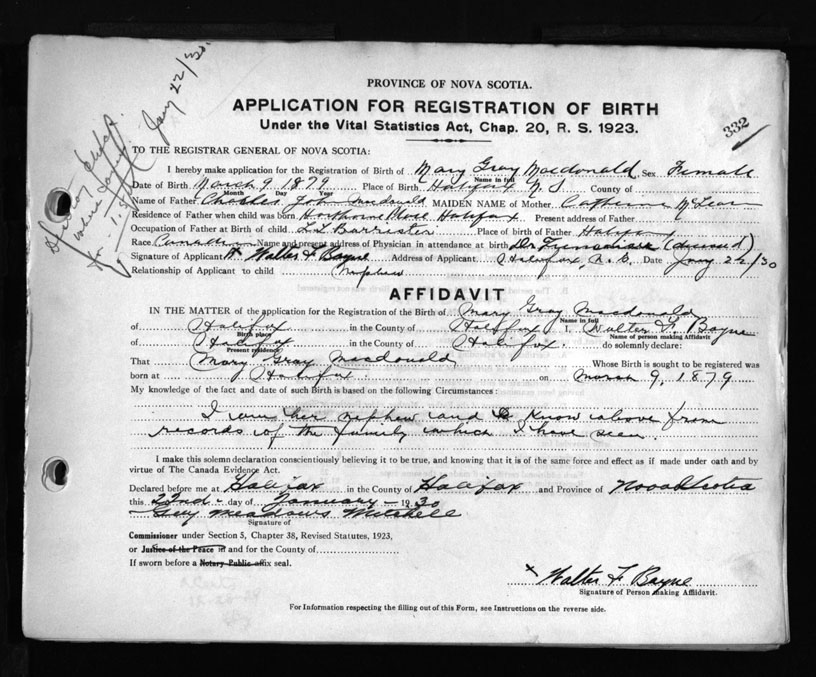 Jany 22/30.
332
PROVINCE OF NOVA SCOTIA.
APPLICATION FOR REGISTRATION OF BIRTH
Under the Vital Statistics Act, Chap. 20, R. S. 1923.
TO THE REGISTRAR GENERAL OF NOVA SCOTIA:
I hereby make application for the Registration of Birth of Mary Gray Macdonald Sex Female
Name in full
Date of Birth March 9 1879 Place of Birth Halifax N S County of
Month Day Year
Name of Father Charles John Macdonald MAIDEN NAME of Mother Catherine McLean
Residence of Father when child was born Halifax Present address of Father
Occupation of Father at Birth of child Barrister Place of birth of Father Halifax
Race Canadian Name and present address of Physician in attendance at birth Dr (deceased)
Signature of Applicant Walter F Bayne Address of Applicant Halifax, N.S. Date Jany 22/30
Relationship of Applicant to child Nephew
AFFIDAVIT
IN THE MATTER of the application for the Registration of the Birth of Mary Gray Macdonald
Name in full
of Halifax in the County of Halifax I, Walter F. Bayne
Birth place Name of person making Affidavit
of Halifax in the County of Halifax. do solemnly declare:
Present residence
That Mary Gray Macdonald Whose Birth is sought to be registered was
born at Halifax on March 9, 1879
My knowledge of the fact and date of such Birth is based on the following Circumstances:
I am her nephew and know above from
records of the family which I have seen.
I make this solemn declaration conscientiously believing it to be true, and knowing that it is of the same force and effect as if made under oath and by
virtue of The Canada Evidence Act.
Declared before me at Halifax in the County of Halifax and Province of Nova Scotia
this 22nd day of January 1930
Guy Meadows Mitchell
Signature of
Commissioner under Section 5, Chapter 38, Revised Statutes, 1923,
or Justice of the Peace in and for the County of
If sworn before a Notary Public affix seal.
x Walter F Bayne
Signature of Person making Affidavit.
For Information respecting the filling out of this Form, see Instructions on the reverse side.